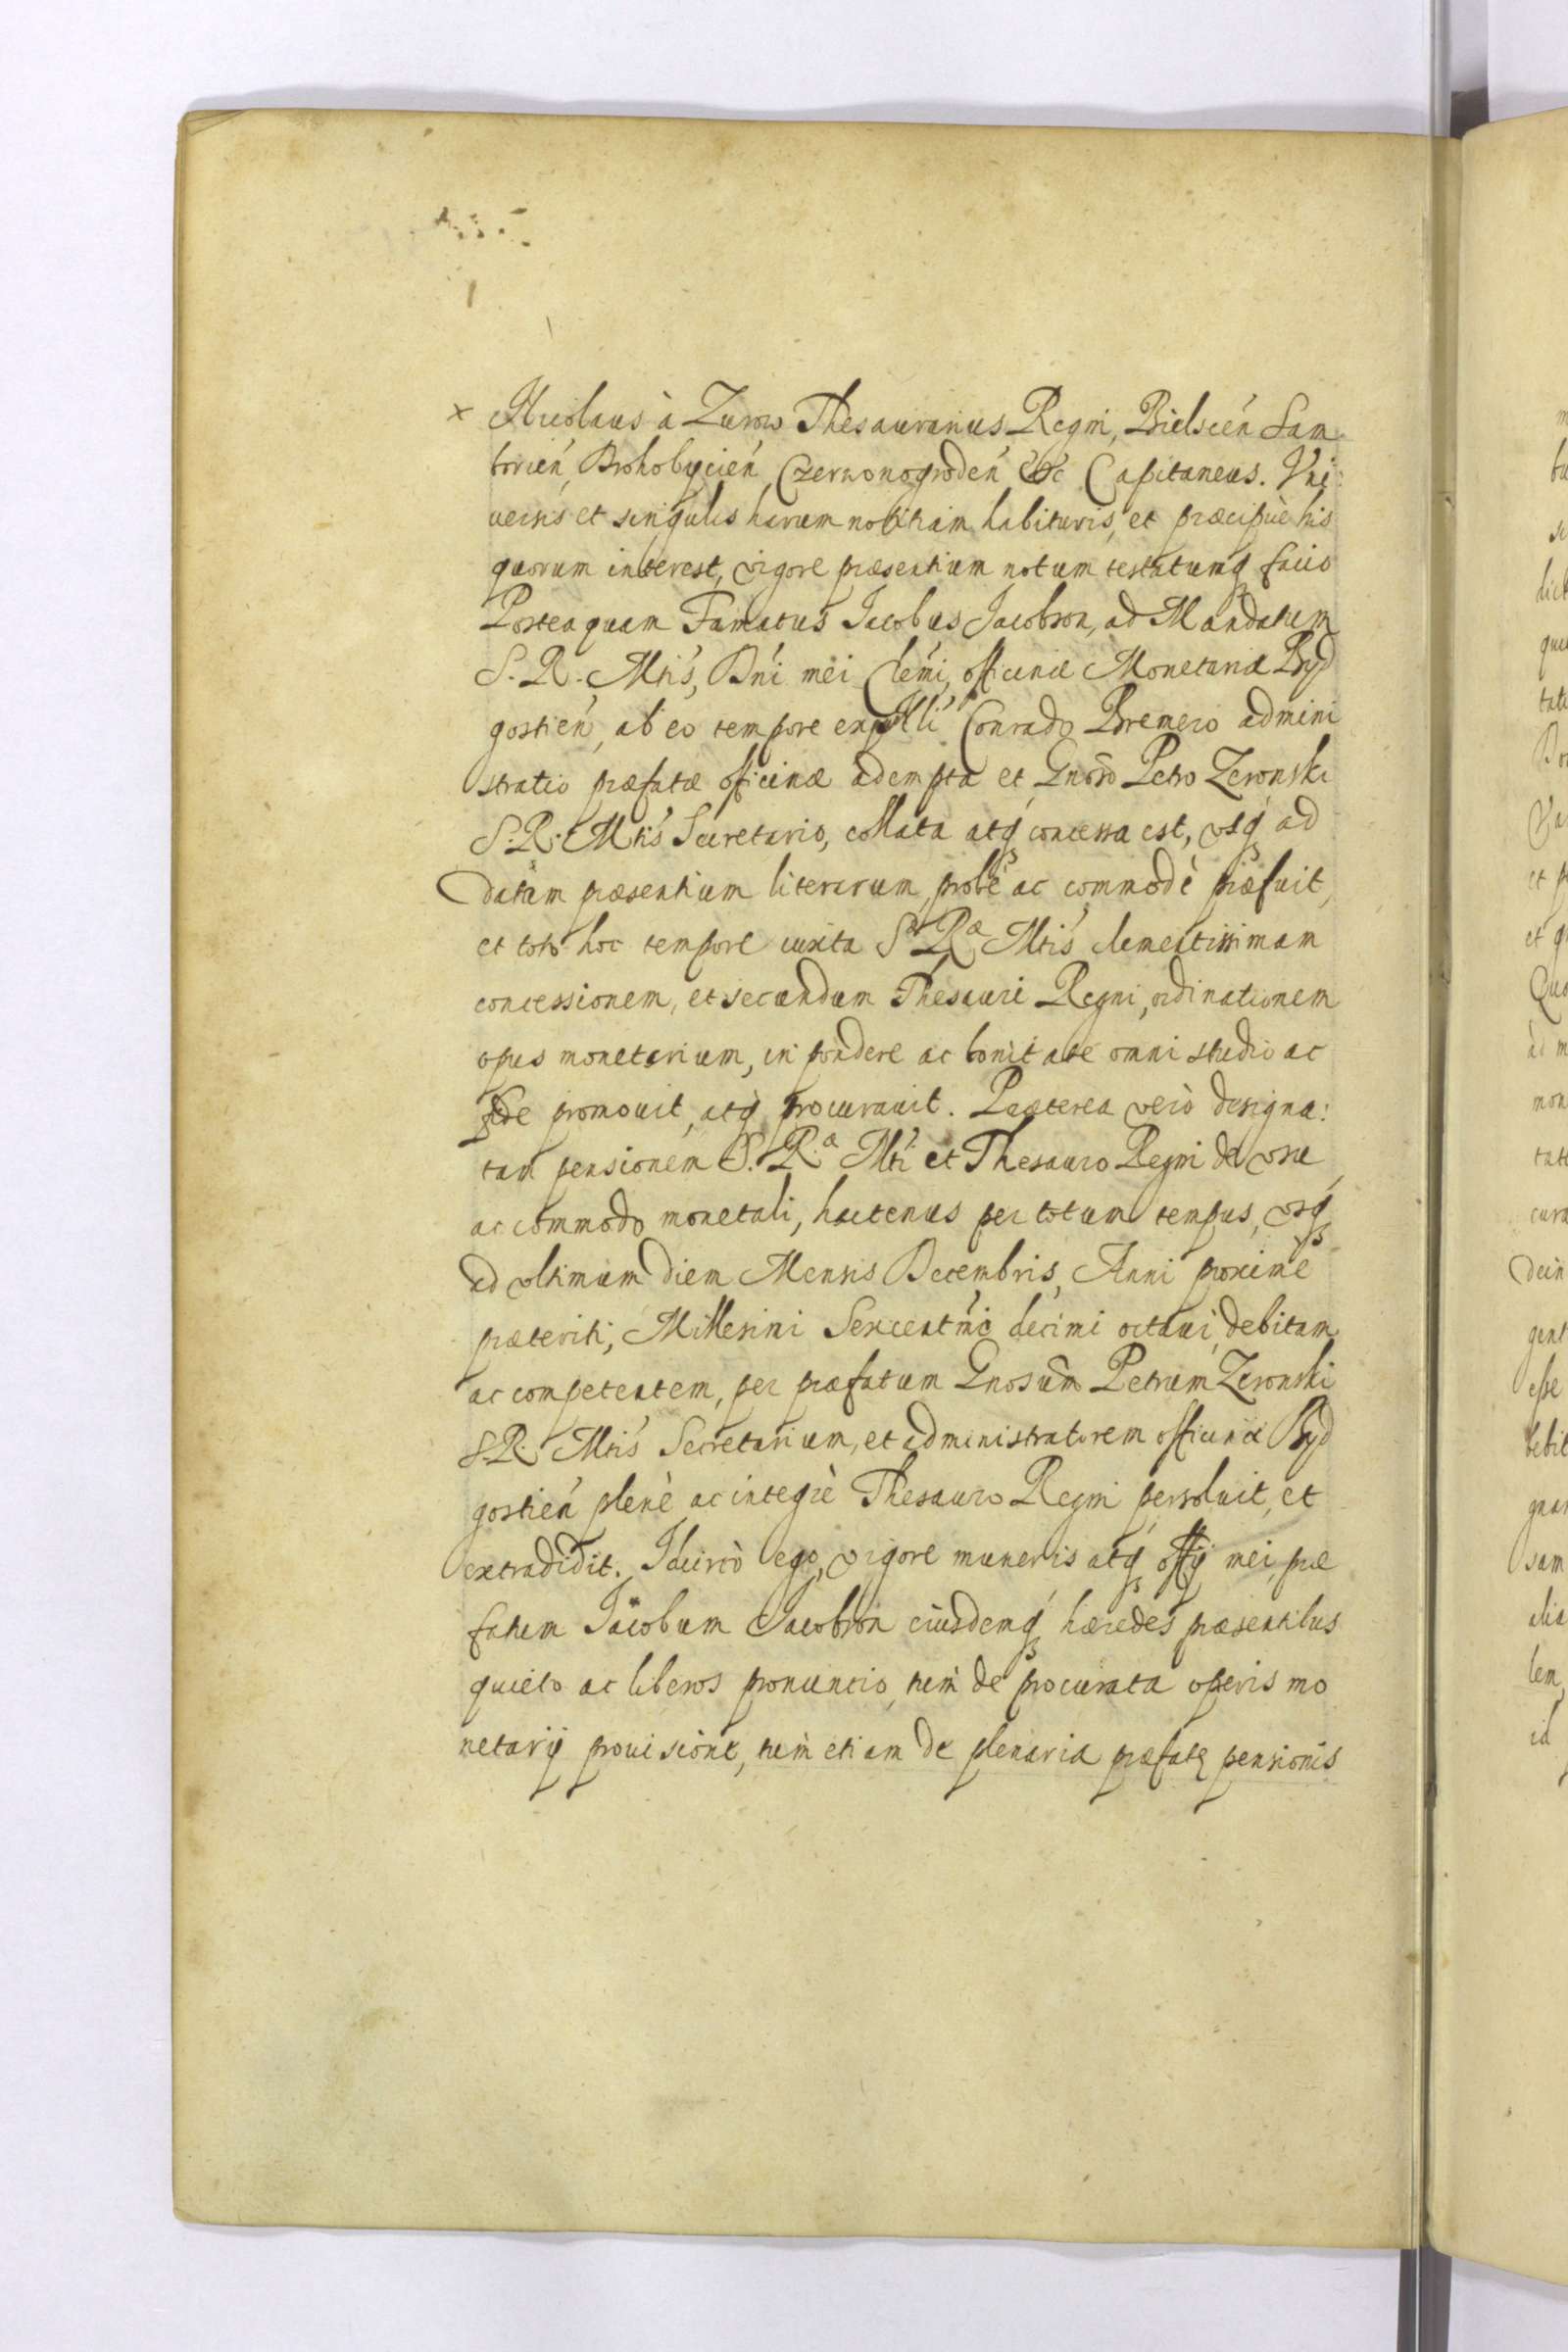 × Nicolaus à Zurow Thesaurarius Regni, Bielscén Sam
borién, Drohobycién, Czerwonogrodén &c Capitaneus. Vni:
uersis et singulis harum notitiam habituris, et præcipuè his
quorum interest, vigore præsentium notum testatumq́ facio
Postea quam Famatus Iacobus Jacobson, ad Mandatum
S. R. Mtis, Dni mei Clemi, officinæ Monetariæ Byd
gostién, ab eo tempore ex quo Conrado Bremero admini
stratio præfatæ officinæ adempta et Gnoso Petro Zeronski
S. R. Mtis Secretario, collata atq́ concessa est, vsq́ ad
datam præsentium literarum, probè ac commodè præfuit,
et toto hoc tempore iuxta S. Ræ Mtis clementissimam
concessionem, et secundum Thesauri Regni, ordinationem
opus monetarium, in pondere ac bonitate omni studio ac
fide promouit, atq́ procurauit. Præterea verò designa:
tam pensionem S. R.æ Mti et Thesauro Regni de vsu
ac commodo monetali, hactenus per totum tempus, vsq́
ad vltimum diem Mensis Decembris, Anni proximè
præteriti, Millesimi Sexcentmi decimi octaui, debitam
ac competentem, per præfatum Gnosum Petrum Zeronski
S. R. Mtis Secretarium, et administratorem officinæ Byd
gostién plenè ac integrè Thesauro Regni persoluit, et
extradidit. Idcircò ego, vigore muneris atq́ offij mei, præ
fatum Jacobum Jacobson eiusdemq́ hæredes præsentibus
quieto ac liberos pronuncio, tum de procurata operis mo
netarij prouisione, tum etiam de plenaria præfatę pensionis